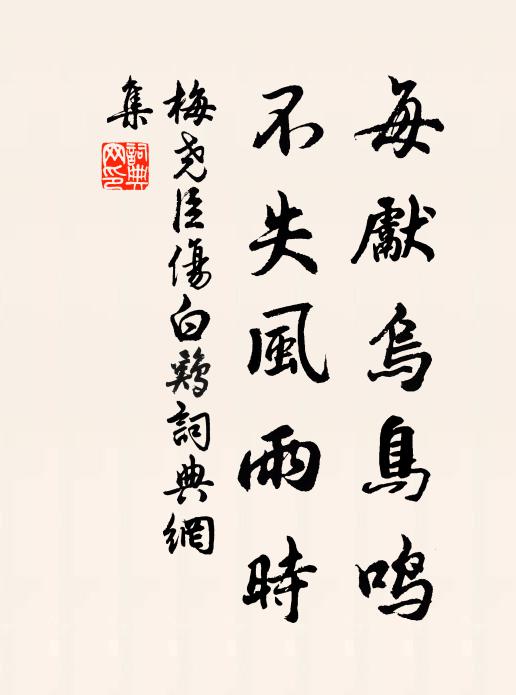 每獻烏鳥鳴
不失風雨時
梅尧臣傷白鷄詞典網
集
詞典
网印